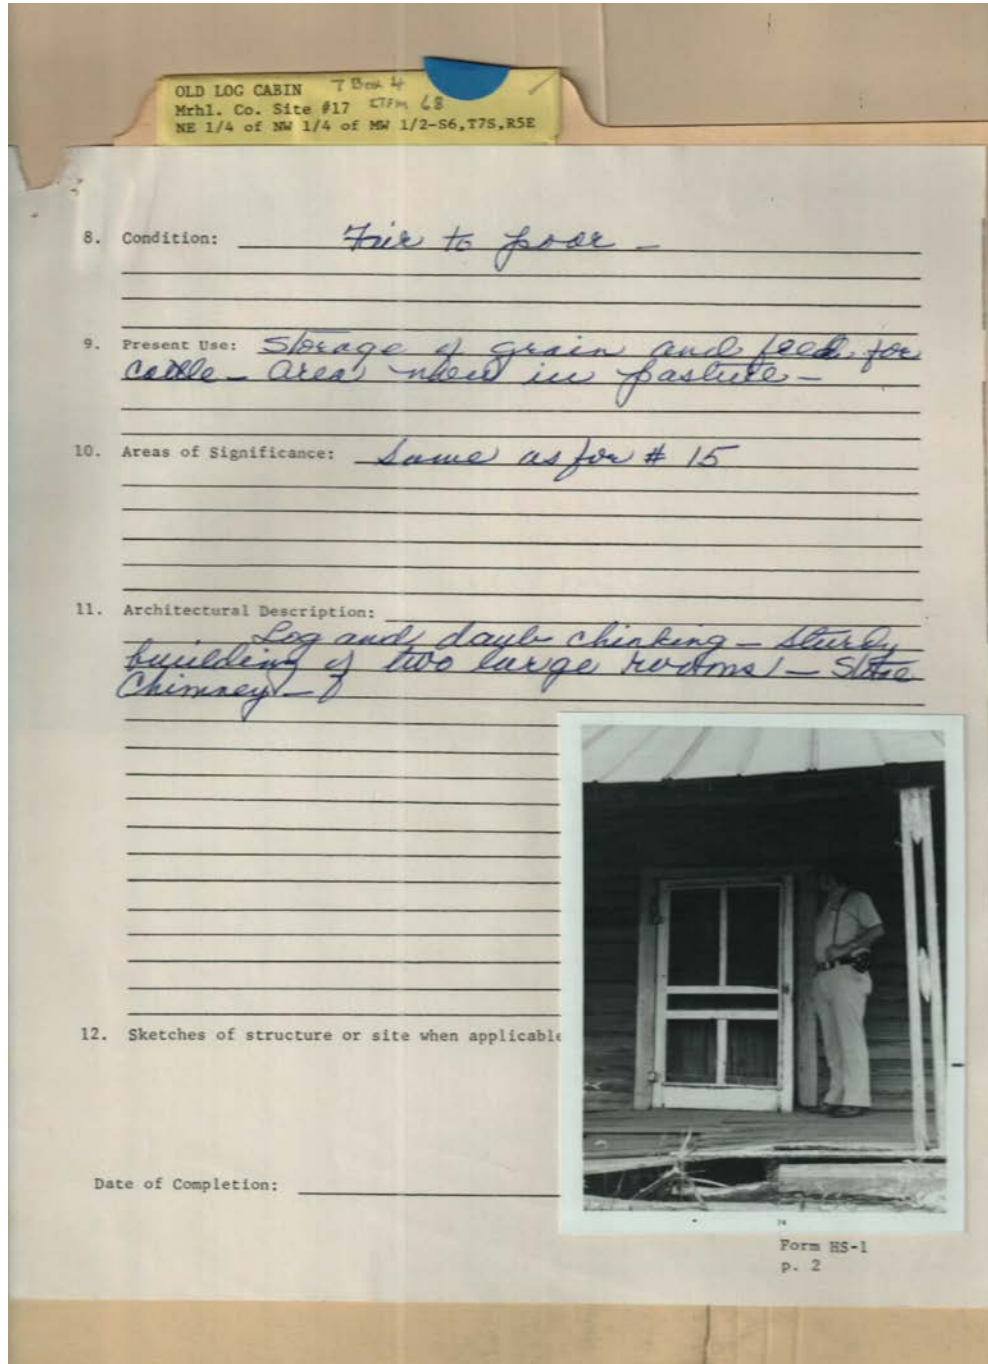 OLD LOG CABIN 7 Box 4
Mrhl. Co. Site #17 ITFm 68
NE 1/4 of NW 1/4 of MW 1/2-S6,T7S,R5E
8. Condition: Fair to poor -
9. Present Use: Storage of grain and feed for
cattle - Area now in pasture -
10. Areas of Significance: Same as for # 15
11. Architectural Description:
Log and daub chinking - Sturdy
building of two large rooms - Stone
Chimney -
12. Sketches of structure or site when applicable
Date of Completion:
Form HS-1
p. 2